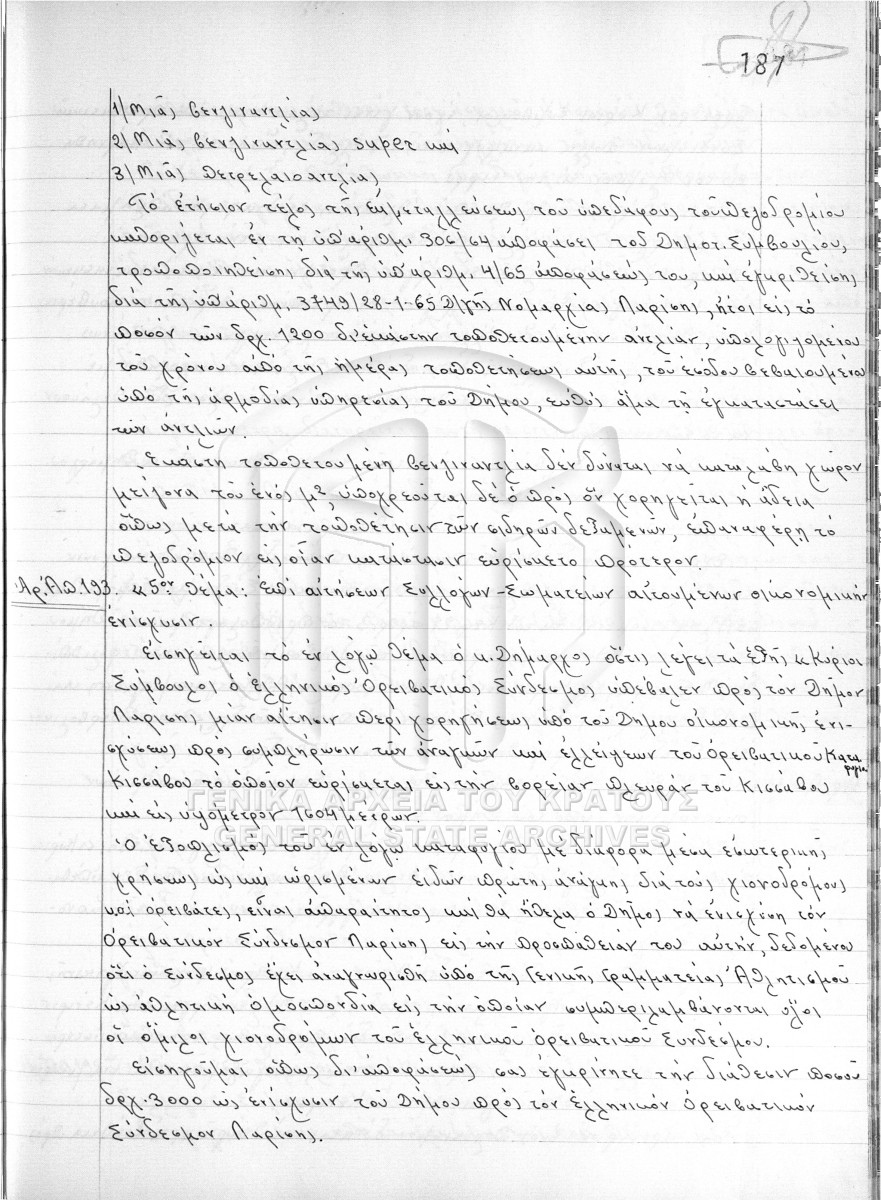 187
1/ Μιᾶς βενζιναντλίας
2/ Μιᾶς βενζιναντλίας super καί
3/ Μιᾶς πετρελαιοαντλίας
Τό ἐτήσιον τέλος τῆς ἐκμεταλλεύσεως τοῦ ὑπεδάφους τοῦ πεζοδρομίου
καθορίζεται ἐν τῇ ὑπ' ἀριθμ. 306/64 ἀποφάσει τοῦ Δημοτ. Συμβουλίου,
τροποποιηθείσης διά τῆς ὑπ' ἀριθμ. 4/65 ἀποφάσεώς του, καί ἐγκριθείσης
διά τῆς ὑπ' ἀριθμ. 3749/28-1-65 Δ/γῆς Νομαρχίας Λαρίσης, ἤτοι εἰς τό
ποσόν τῶν δρχ. 1200 δι' ἑκάστην τοποθετουμένην ἀντλίαν, ὑπολογιζομένου
τοῦ χρόνου ἀπό τῆς ἡμέρας τοποθετήσεως αὐτῆς, τοῦ ἐσόδου βεβαιουμένου
ὑπό τῆς ἁρμοδίας ὑπηρεσίας τοῦ Δήμου, εὐθύς ἅμα τῇ ἐγκαταστάσει
τῶν ἀντλιῶν.
Ἑκάστη τοποθετουμένη βενζιναντλία δέν δύναται νά καταλάβῃ χῶρον
μείζονα τοῦ ἑνός μ², ὑποχρεοῦται δέ ὁ πρός ὅν χορηγεῖται ἡ ἄδεια
ὅπως μετά τήν τοποθέτησιν τῶν σιδηρῶν δεξαμενῶν, ἐπαναφέρῃ τό
πεζοδρόμιον εἰς οἵαν κατάστασιν εὑρίσκετο πρότερον.
Αρ. Απ. 193. « 5ον θέμα: Ἐπί αἰτήσεων Συλλόγων - Σωματείων αἰτουμένων οἰκονομικήν
ἐνίσχυσιν.
Εἰσηγεῖται τό ἐν λόγῳ θέμα ὁ κ. Δήμαρχος ὅστις λέγει τά ἑξῆς « Κύριοι
Σύμβουλοι ὁ Ἑλληνικός Ὀρειβατικός Σύνδεσμος ὑπέβαλεν πρός τόν Δῆμον
Λαρίσης μίαν αἴτησιν περί χορηγήσεως ὑπό τοῦ Δήμου οἰκονομικῆς ἐνι-
σχύσεως πρός συμπλήρωσιν τῶν ἀναγκῶν καί ἐλλείψεων τοῦ Ὀρειβατικοῦ Κατα
φυγίου
Κισσάβου τό ὁποῖον εὑρίσκεται εἰς τήν βορείαν πλευράν τοῦ Κισσάβου
καί εἰς ὑψόμετρον 1604 μέτρων.
ΓΕΝΙΚΑ ΑΡΧΕΙΑ ΤΟΥ ΚΡΑΤΟΥΣ
GENERAL STATE ARCHIVES
Ὁ ἐξοπλισμός τοῦ ἐν λόγῳ καταφυγίου μέ διάφορα μέσα ἐσωτερικῆς
χρήσεως ὡς καί ὡρισμένων εἰδῶν πρώτης ἀνάγκης διά τούς χιονοδρόμους
καί ὀρειβάτες, εἶναι ἀπαραίτητος καί θά ἤθελα ὁ Δῆμος νά ἐνισχύσῃ τόν
Ὀρειβατικόν Σύνδεσμον Λαρίσης εἰς τήν προσπάθειάν του αὐτήν, δεδομένου
ὅτι ὁ Σύνδεσμος ἔχει ἀναγνωρισθῆ ὑπό τῆς Γενικῆς Γραμματείας Ἀθλητισμοῦ
ὡς ἀθλητική ὁμοσπονδία εἰς τήν ὁποίαν συμπεριλαμβάνονται ὅλοι
οἱ ὅμιλοι χιονοδρόμων τοῦ Ἑλληνικοῦ Ὀρειβατικοῦ Συνδέσμου.
Εἰσηγοῦμαι ὅπως δι' ἀποφάσεώς σας ἐγκρίνητε τήν διάθεσιν ποσοῦ
δρχ. 3000 ὡς ἐνίσχυσιν τοῦ Δήμου πρός τόν Ἑλληνικόν Ὀρειβατικόν
Σύνδεσμον Λαρίσης.